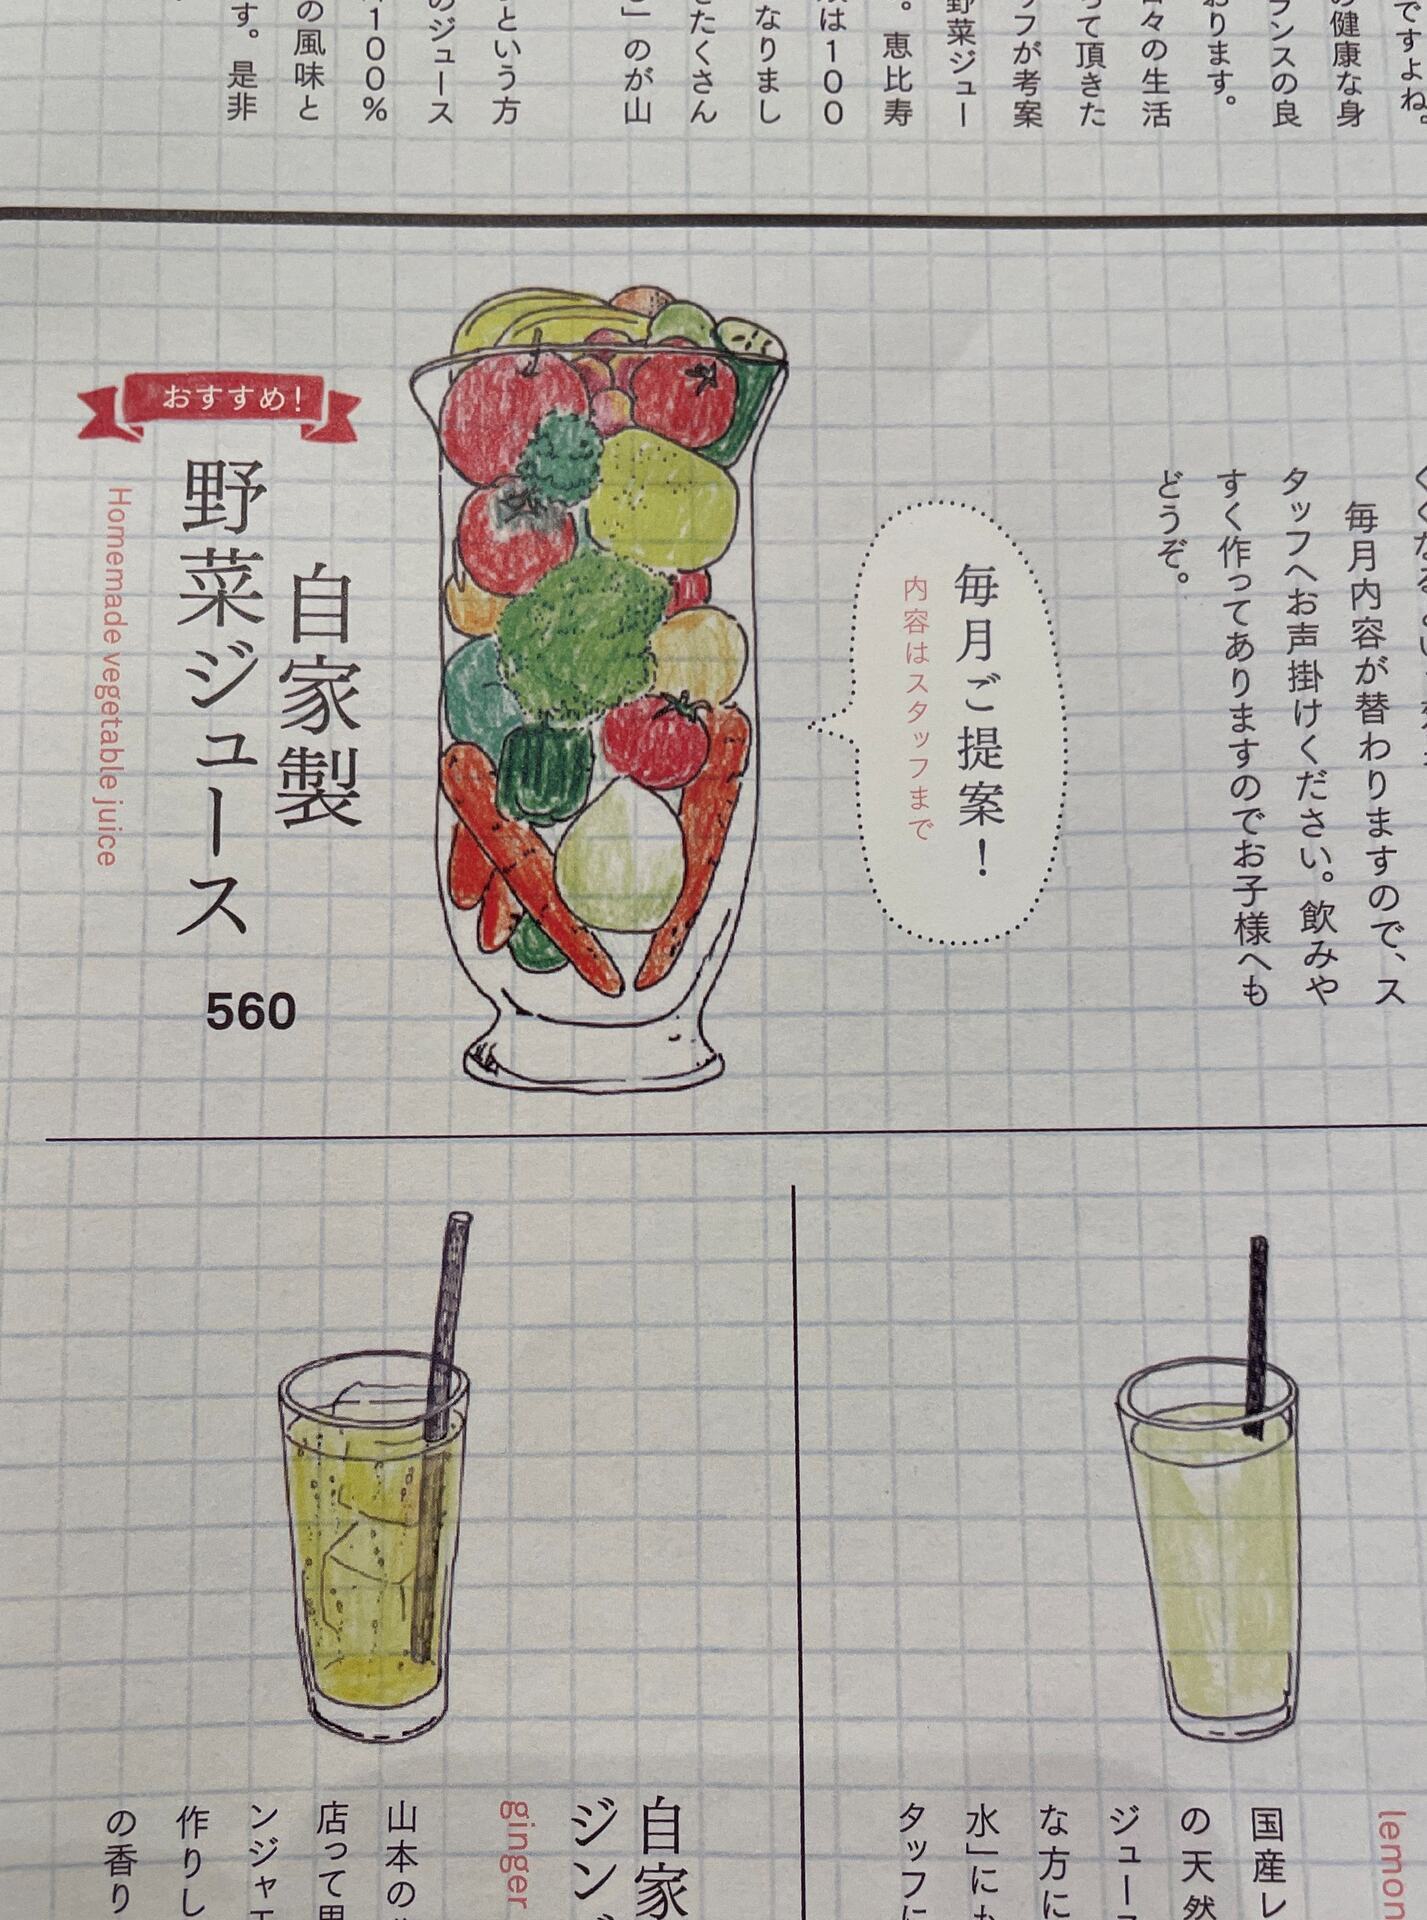 ですよね。
の健康な身
ランスの良
おります。
日々の生活
って頂きた
ッフが考案
野菜ジュー
。恵比寿
は100
なりまし
たくさん
」のが山
という方
のジュース
100%
の風味と
す。是非
毎月内容が替わりますので、ス
タッフへお声掛けください。飲みや
すく作ってありますのでお子様へも
どうぞ。
毎月ご提案!
内容はスタッフまで
おすすめ!
自家製
野菜ジュース
Homemade vegetable juice
560
lemon
国産レ
の天然
ジュース
な方に
水」にも
タッフに
自家
ジン
ginger
山本の
店って
ンジャエ
作りし
の香り